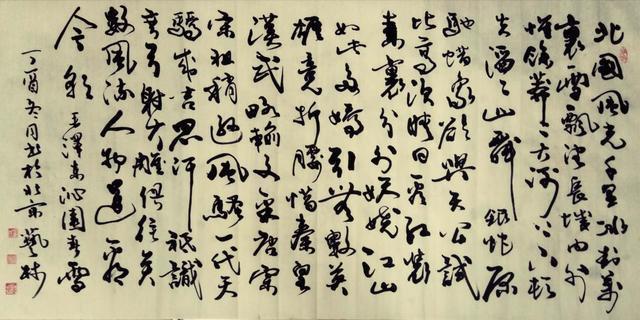 北國風光千里冰封萬
裏雪飄望長城内外
惟餘莽〻大河上下頓
失滔〻山舞銀蛇原
馳蠟象欲與天公試
比高須晴日看紅裝
素裹分外妖嬈江山
如此多嬌引無數英
雄竟折腰惜秦皇
漢武略輸文采唐宗
宋祖稍遜風騷一代天
驕成吉思汗祇識
彎弓射大雕俱往矣
數風流人物還看
今朝 毛澤東沁園春雪
丁酉冬月書於北京